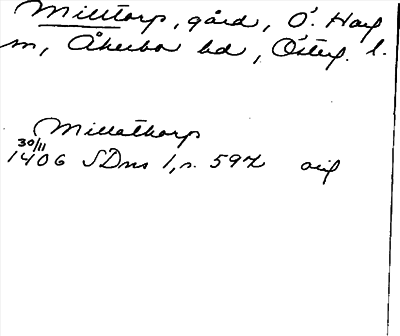 Milltorp, gård, Ö. Harg
sn, Åkerbo hd, Österg. l.
Millathorp
30/11
1406 SDns 1, s. 597 orig